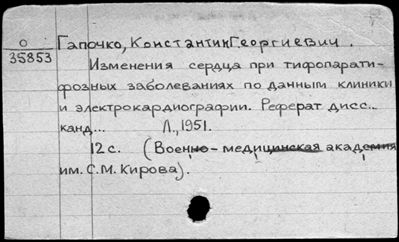 О
35853
Гапочко, Константин Георгиевич.
Изменения сердца при тифопарати-
фозных заболеваниях по данным клиники
и электрокардиографии. Реферат дисс...
канд... Л., 1951.
12 с. (Военно-медицинская академия
им. С.М. Кирова).